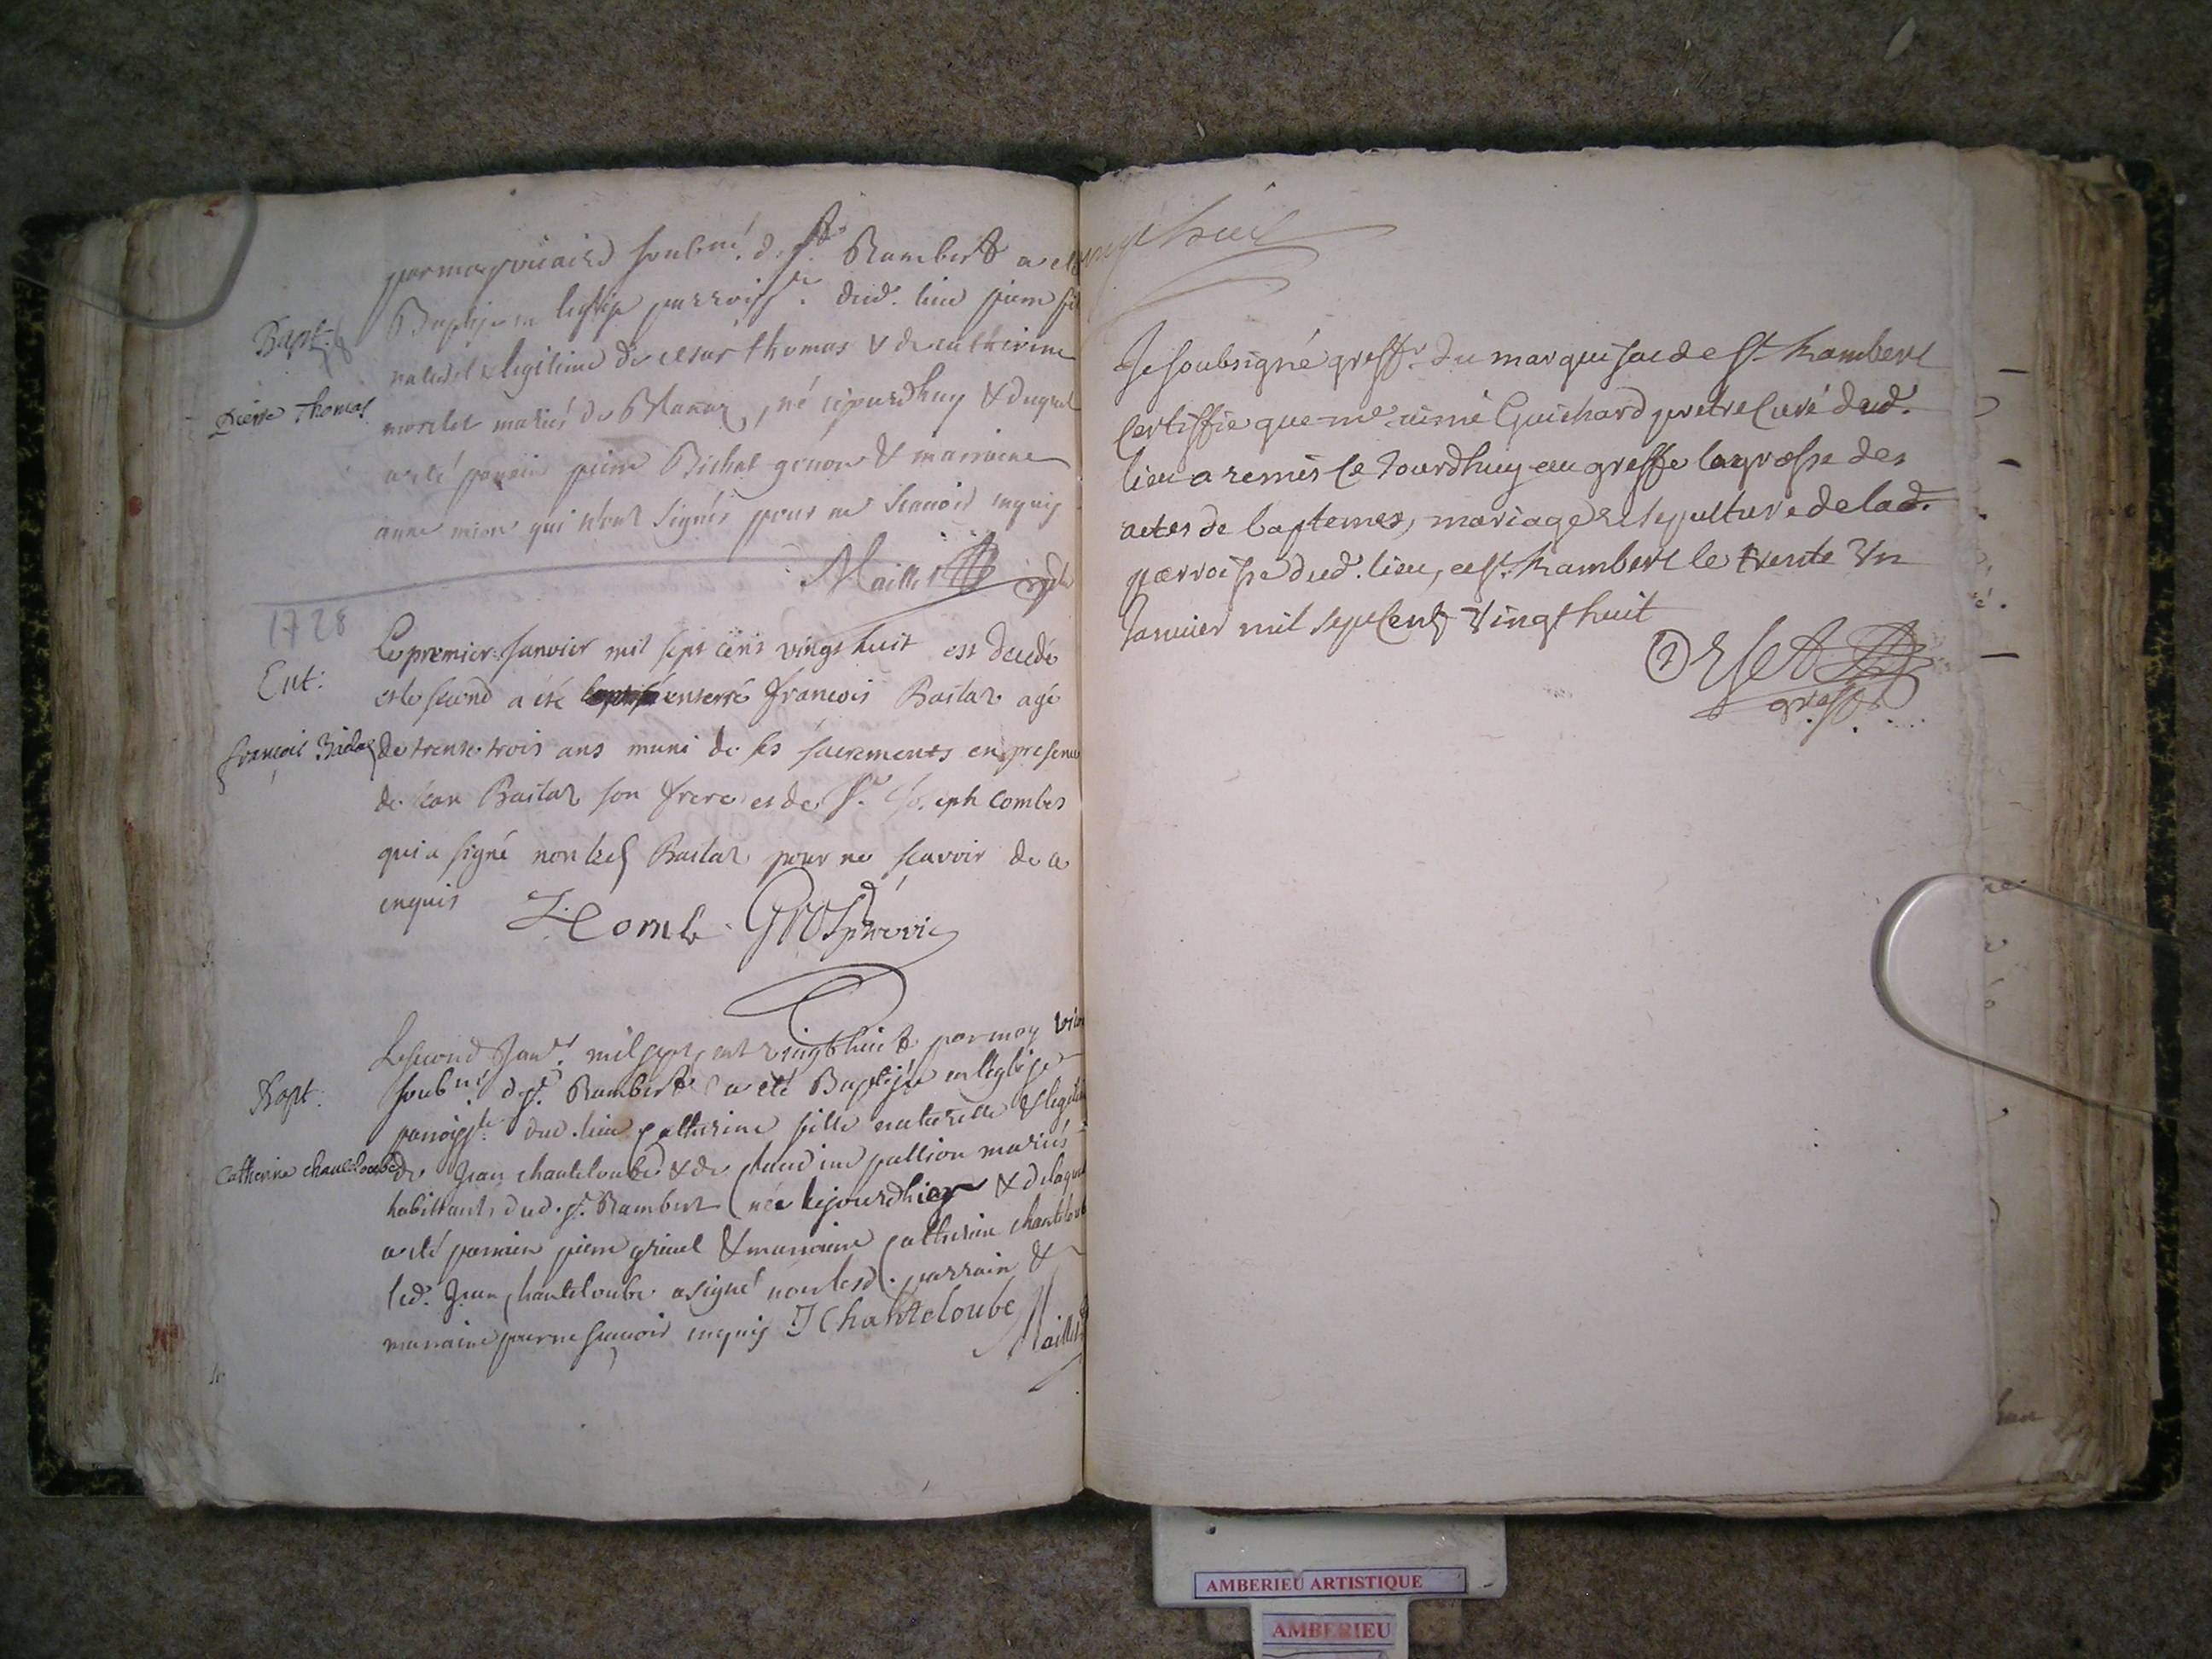 par moy vicaire soubné. de St. Rambert a été
Baptisé en leglise parroissle. dud. lieu pierre fils
Bapt.
naturel & legitime de cesar thomas & de catherine
Pierre Thomas
mariés de Blanaz, né cejourdhuy & duquel
a eté parrain pierre Bichat & marraine
anne qui n'ont signés pour ne scavoir enquis
Maillet
1728
Le premier Janvier mil sept cens vingt huit est decedé
Ent:
et le second a été enterré francois Bailar agé
françois
de trente trois ans muni de ses sacrements en presence
de Jean Bailar son frere et de Sr. Joseph combes
qui a signé non led Bailar pour ne scavoir de ce
enquis
J. Combe
Le second Janvr. mil sept cent vingt huit par moy vicaire
soubné. de St. Rambert a eté Baptisée en leglise
Bapt.
parroissle. dud. lieu catherine fille naturelle & legitime
Catherine chanteloube
de Jean chanteloube & de claudine pallion mariés
habittants dud. St. Rambert née & de laquelle
a eté parrain pierre & marraine catherine chanteloube
led. Jean chanteloube a signé non lesd. parrain &
marraine pour ne scavoir enquis J Chanteloube
Maillet
vingt huit
Je soubsigné greffr. du marquisat de St. Rambert
Certiffie que mre aimé Guichard pretre Curé dud.
lieu a remis Ce Jourdhuy au greffe la grosse des
actes de baptemes, mariage et sepulture de lad.
parroisse dud. lieu, a St. Rambert le trente Un
Janvier mil sept Cent Vingt huit
Orset
greffr
AMBERIEU ARTISTIQUE
AMBERIEU